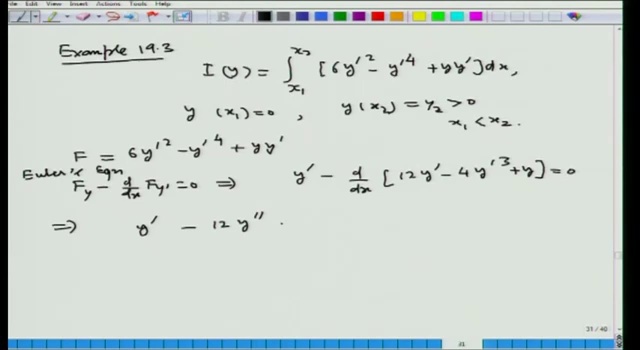 Edit View Insert Actions Tools Help
Example 19.3
I(y) = ∫_{x₁}^{x₂} [6y'² - y'⁴ + yy']dx,
y(x₁)=0, y(x₂) = y₂ > 0
x₁ < x₂.
F = 6y'² - y'⁴ + yy'
Euler's Eqn
F_y - d/dx F_y' = 0 ⇒ y' - d/dx [12y' - 4y'³ + y] = 0
⇒ y' - 12y''
31 / 40
31